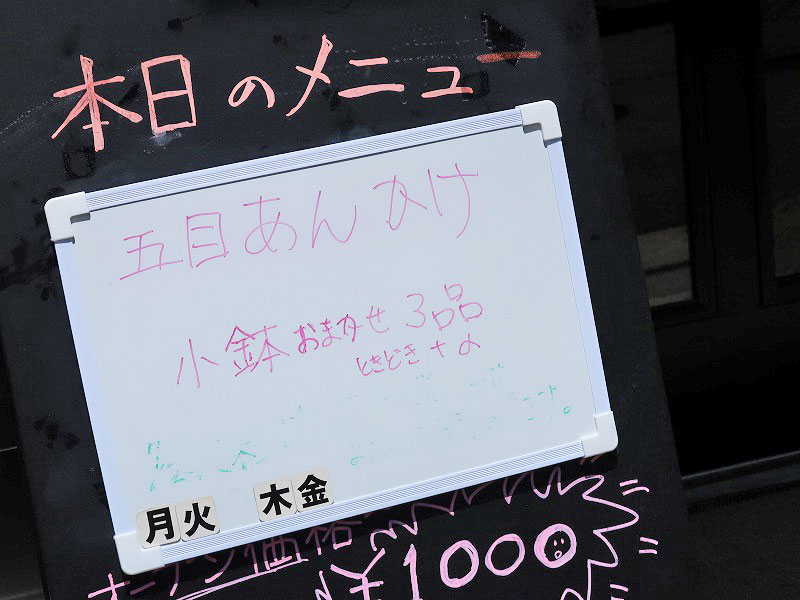 本日のメニュー
五目あんかけ
小鉢おまかせ3品
ときどき+α
月火 木金
オープン価格
¥1000